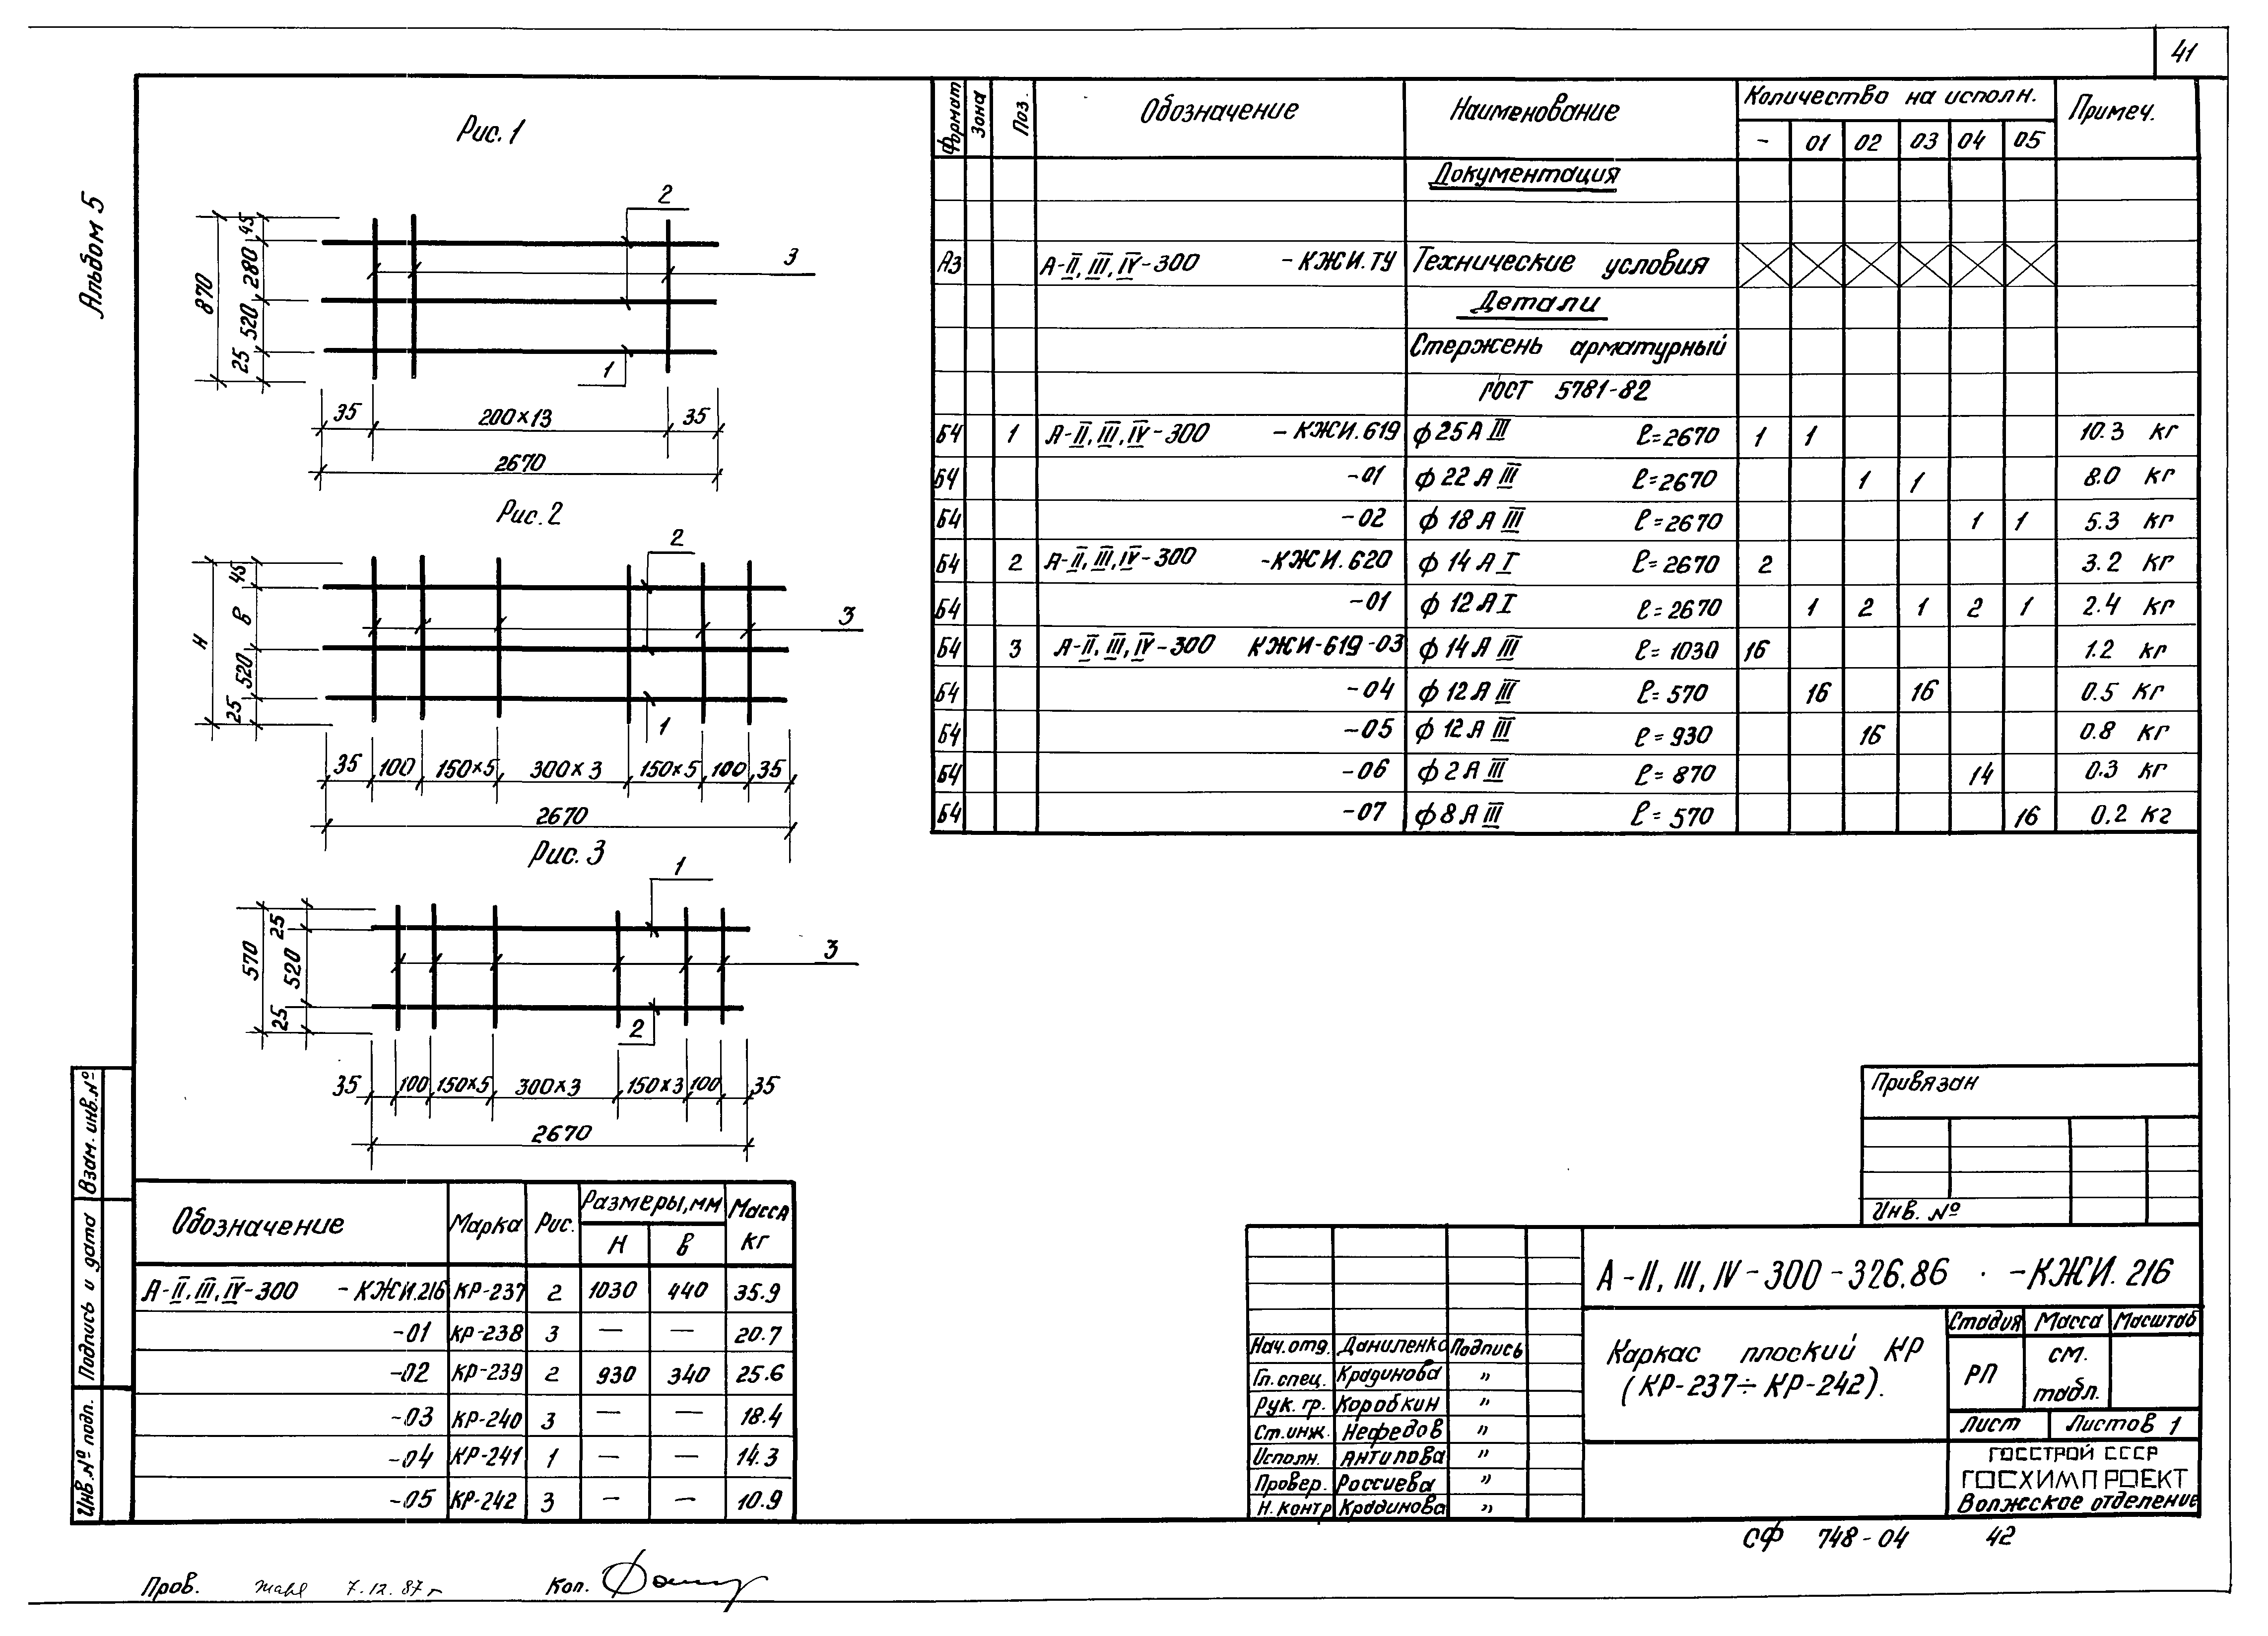 41
Альбом 5
Рис. 1
2
3
1
870
45
280
520
25
35 200×13 35
2670
Рис. 2
2
3
1
Н
45
в
520
25
35 100 150×5 300×3 150×5 100 35
2670
Рис. 3
1
3
2
570
25
520
25
35 100 150×5 300×3 150×3 100 35
2670
Обозначение Марка Рис. Размеры,мм Масса кг
Н в
А-II, III, IV-300 -КЖИ.216 КР-237 2 1030 440 35.9
-01 КР-238 3 — — 20.7
-02 КР-239 2 930 340 25.6
-03 КР-240 3 — — 18.4
-04 КР-241 1 — — 14.3
-05 КР-242 3 — — 10.9
Формат Зона Поз. Обозначение Наименование Количество на исполн. Примеч.
- 01 02 03 04 05
Документация
А3 А-II, III, IV-300 -КЖИ.ТУ Технические условия
Детали
Стержень арматурный
ГОСТ 5781-82
Б4 1 А-II, III, IV-300 -КЖИ.619 ф25АIII ℓ=2670 1 1 10.3 кг
Б4 -01 ф22АIII ℓ=2670 1 1 8.0 кг
Б4 -02 ф18АIII ℓ=2670 1 1 5.3 кг
Б4 2 А-II, III, IV-300 -КЖИ.620 ф14АI ℓ=2670 2 3.2 кг
Б4 -01 ф12АI ℓ=2670 1 2 1 2 1 2.4 кг
Б4 3 А-II, III, IV-300 КЖИ-619-03 ф14АIII ℓ=1030 16 1.2 кг
Б4 -04 ф12АIII ℓ=570 16 16 0.5 кг
Б4 -05 ф12АIII ℓ=930 16 0.8 кг
Б4 -06 ф2АIII ℓ=870 14 0.3 кг
Б4 -07 ф8АIII ℓ=570 16 0.2 кг
Привязан
Инв. №
А-II, III, IV-300-326.86 -КЖИ. 216
Каркас плоский КР
(КР-237÷КР-242).
Стадия Масса Масштаб
РП см. табл.
Лист Листов 1
ГОССТРОЙ СССР
ГОСХИМПРОЕКТ
Волжское отделение
Нач.отд. Даниленко Подпись
Гл.спец. Крадинова "
Рук. гр. Коробкин "
Ст.инж. Нефедов "
Исполн. Антипова "
Провер. Россиева "
Н.контр Крадинова "
Взам. инв.№
Подпись и дата
Инв.№ подл.
СФ 748-04 42
Пров. 7.12.87г Коп.